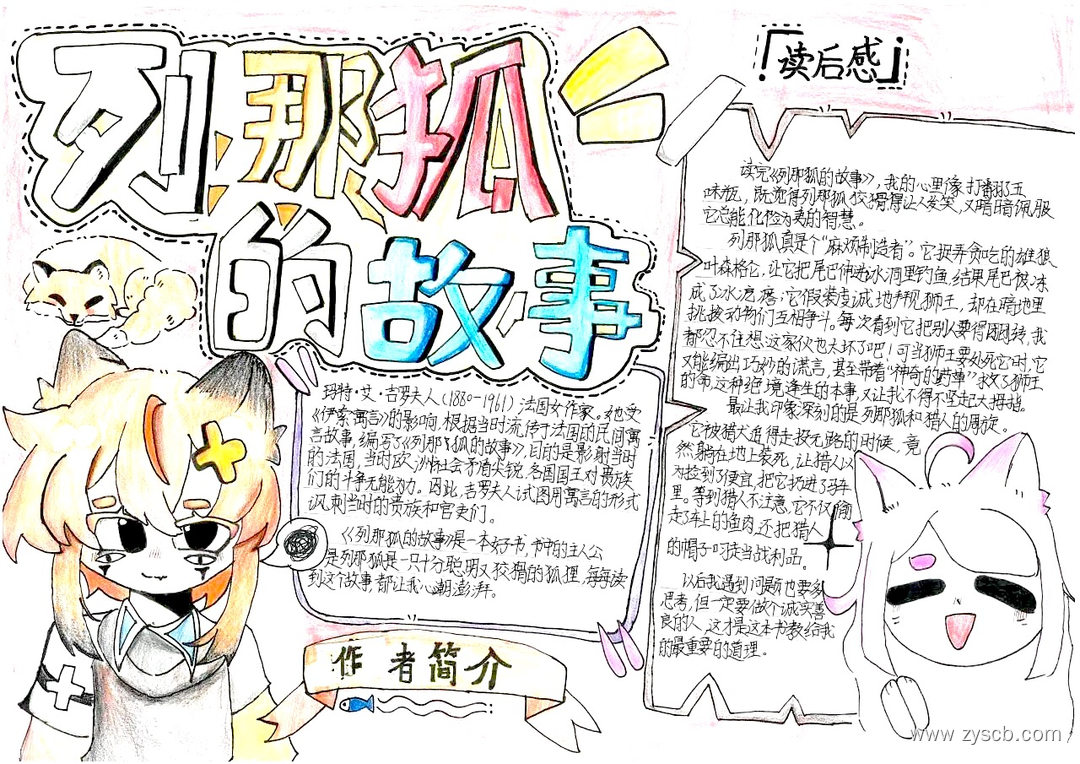 列那狐
的故事
玛特·艾·吉罗夫人(1880-1961)法国女作家。她受
《伊索寓言》的影响,根据当时流传于法国的民间寓
言故事,编写了《列那狐的故事》,目的是影射当时
的法国,当时欧洲社会矛盾尖锐,各国国王对贵族
们的斗争无能为力。因此,吉罗夫人试图用寓言的形式
讽刺当时的贵族和官吏们。
《列那狐的故事》是一本好书,书中的主人公
是列那狐是一只十分聪明又狡猾的狐狸,每每读
到这个故事,都让我心潮澎湃。
作者简介
「读后感」
读完《列那狐的故事》,我的心里像打翻了五
味瓶,既觉得列那狐狡猾得让人发笑,又暗暗佩服
它总能化险为夷的智慧。
列那狐真是个“麻烦制造者”。它捉弄贪吃的雄狼
叶森格仑,让它把尾巴伸进冰洞里钓鱼,结果尾巴被冻
成了冰疙瘩;它假装虔诚地拜见狮王,却在暗地里
挑拨动物们互相争斗。每次看到它把别人耍得团团转,我
都忍不住想:这家伙也太坏了吧!可当狮王要处死它时,它
又能编出巧妙的谎言,甚至带着“神奇的药草”救了狮王
的命,这种绝境逢生的本事,又让我不得不竖起大拇指。
最让我印象深刻的是列那狐和猎人的周旋。
它被猎犬追得走投无路的时候,竟
然躺在地上装死,让猎人以
为捡到了便宜,把它扔进了马车
里。等到猎人不注意,它不仅偷
走了车上的鱼肉,还把猎人
的帽子叼走当战利品。
以后我遇到问题也要多
思考,但一定要做个诚实善
良的人,这才是这本书教给我
的最重要的道理。
www.zyscb.com